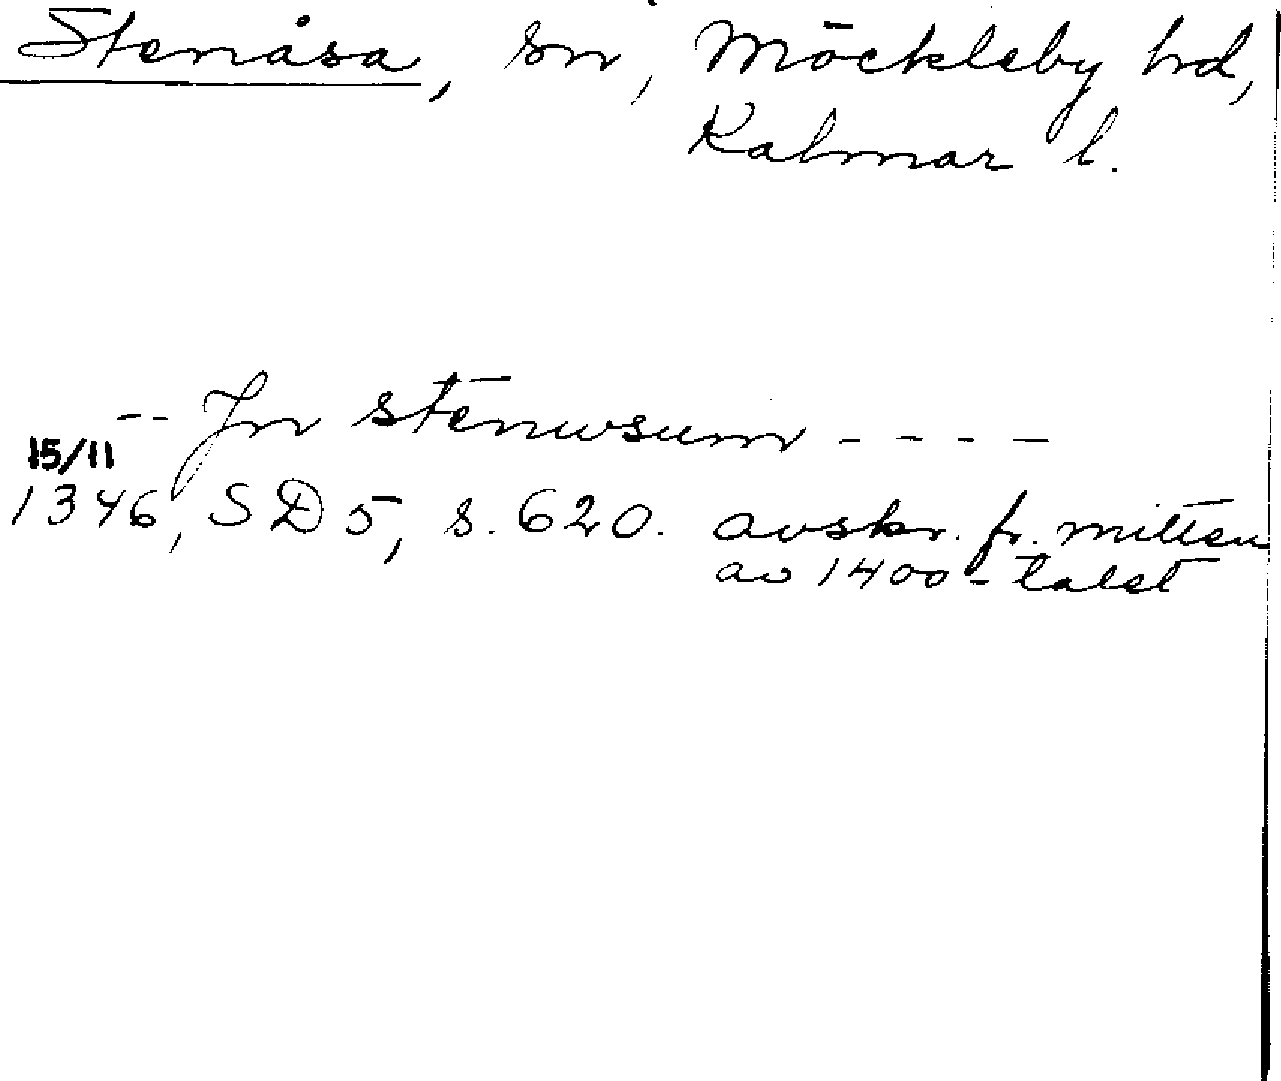 Stenåsa, sn, Möckleby hd,
Kalmar l.
-- Jn stenusum ----
15/11
1346, SD 5, s. 620. avskr. fr. mitten
av 1400-talet